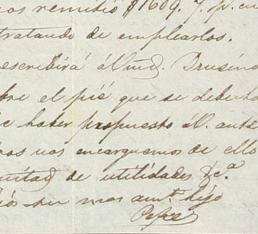 nos remitió $1609. 7. p. cu
tratando de emplearlos.
escribirá á Vmd. Drusina
bre el pié que se debe
e haber propuesto á V. ante
nos encarguemos de ello
mitad de utilidades &c.ª
ser mas am.te hijo
Pepe